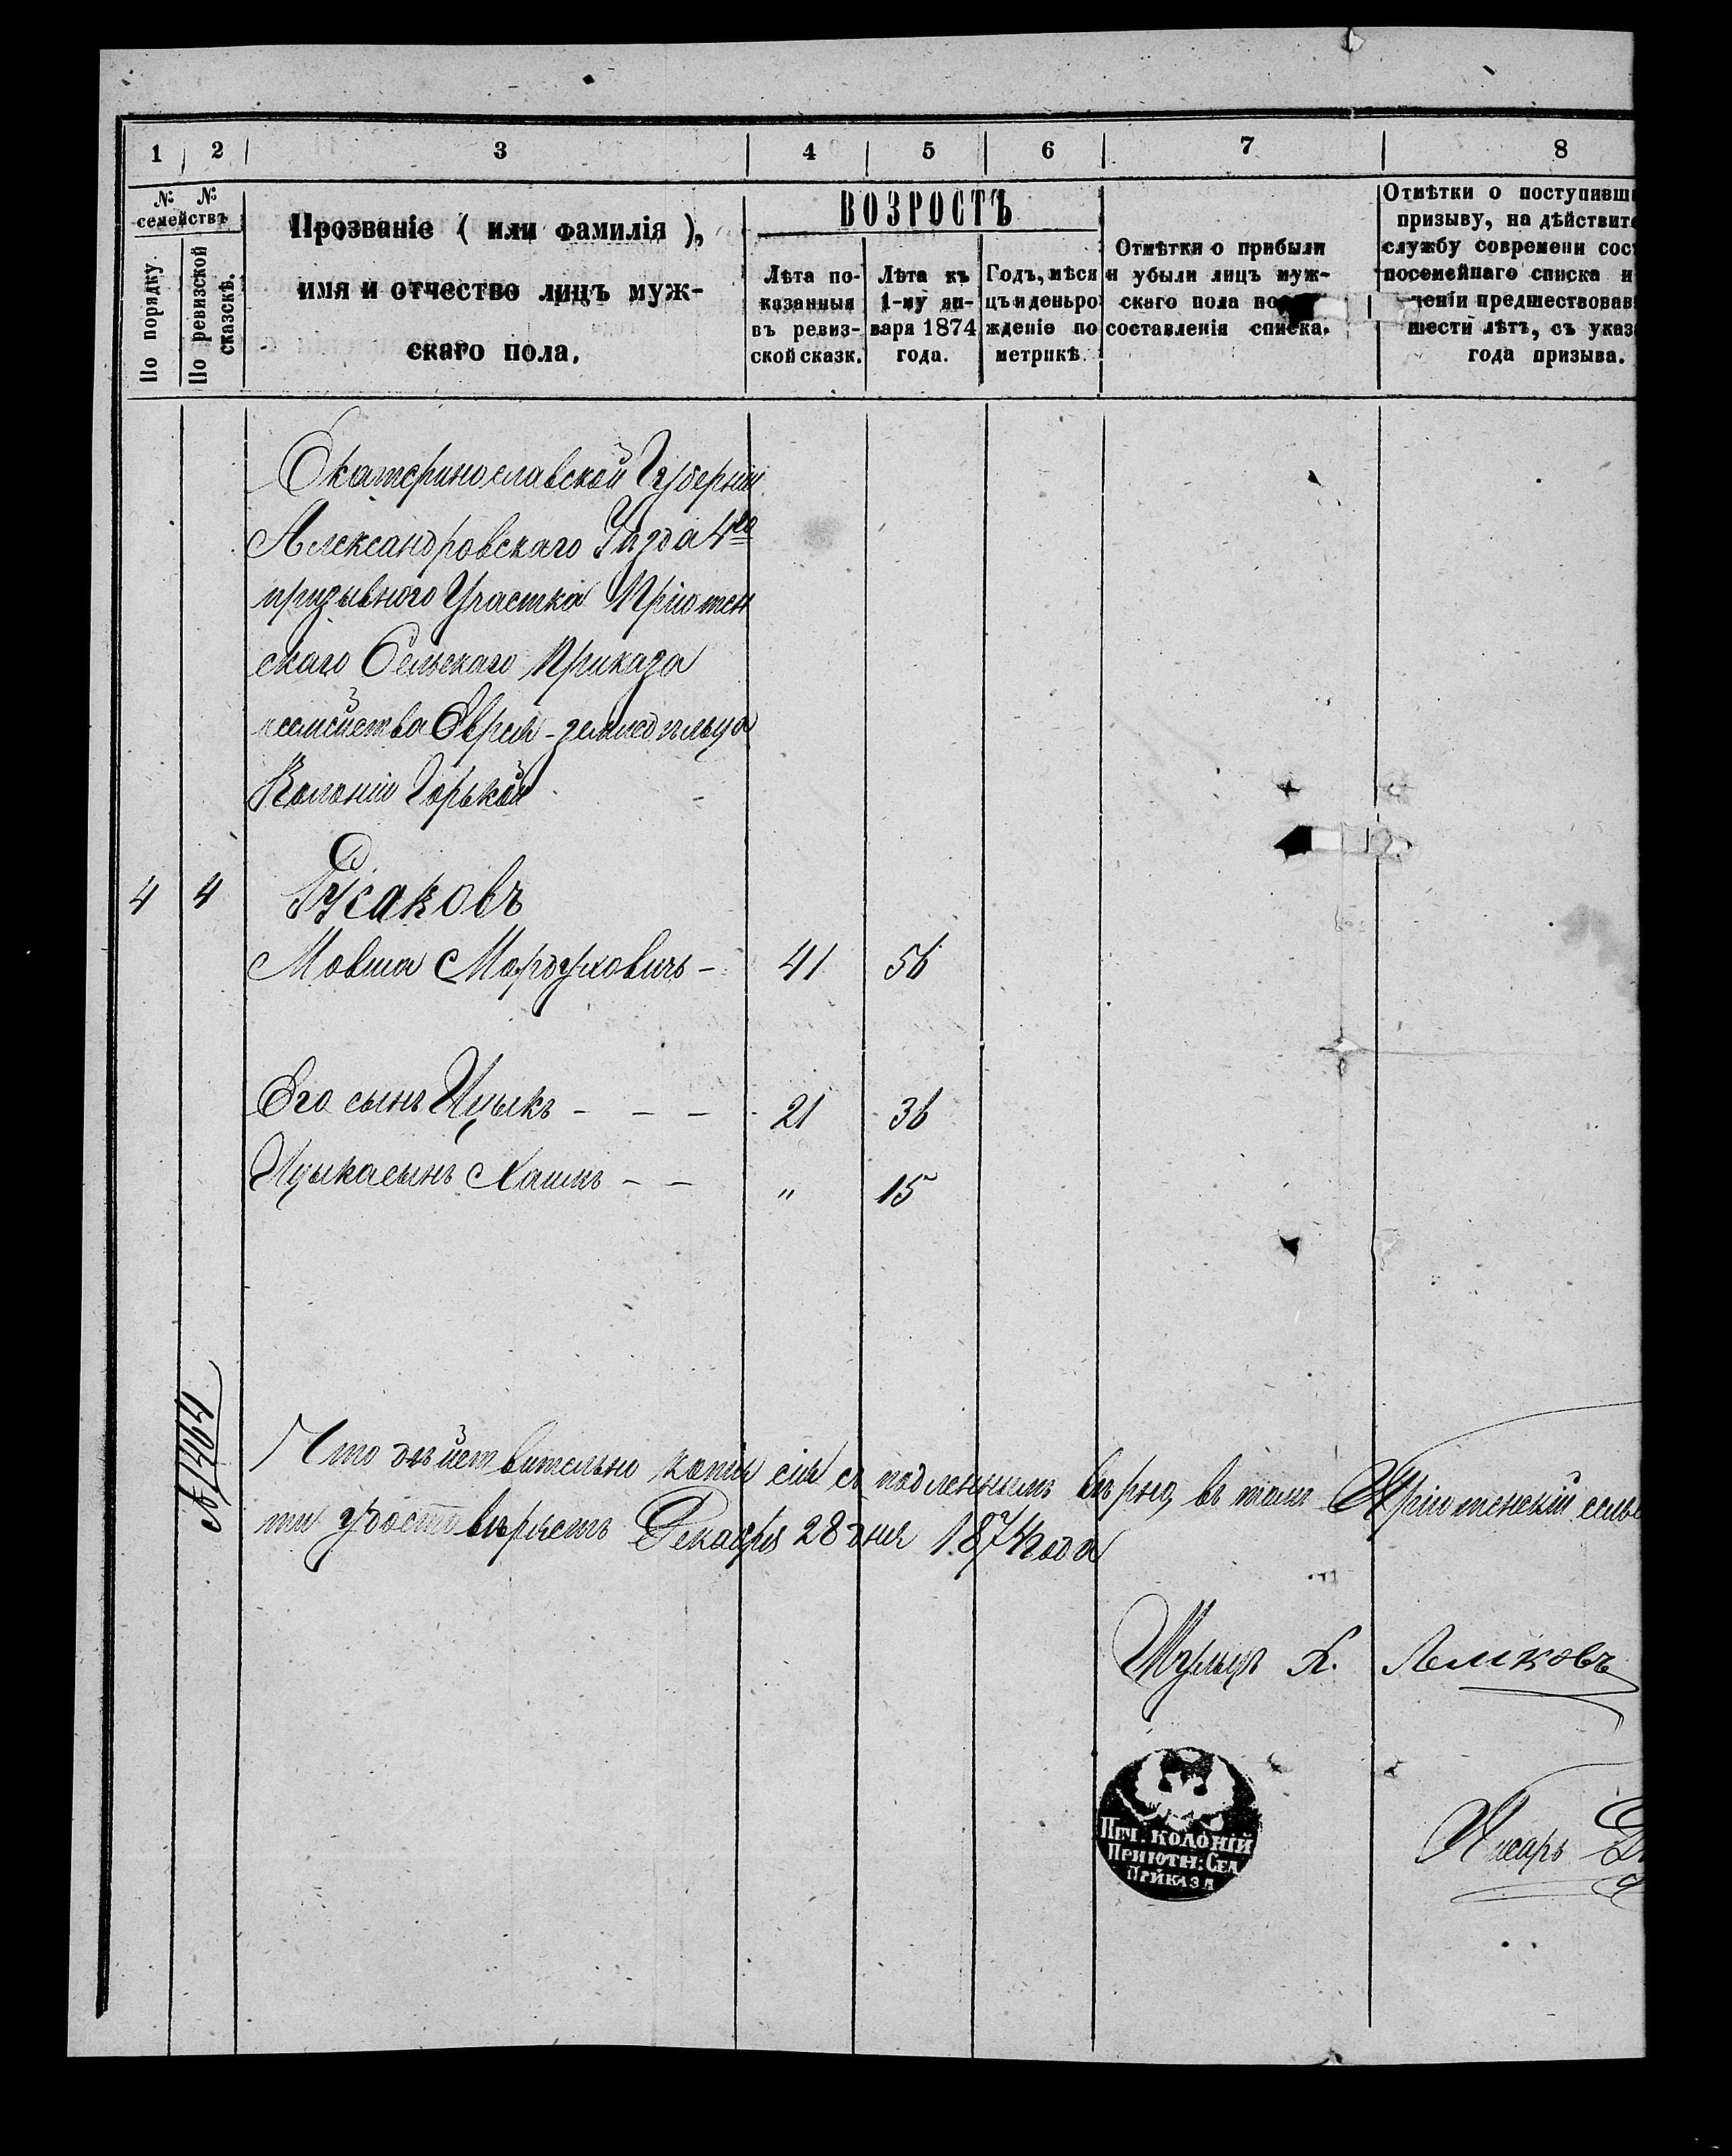 1 2 3 4 5 6 7 8
№ №
семействъ
По порядку.
По ревизской
сказскѣ.
Прозваніе ( или фамилія ),
имя и отчество лицъ муж-
скаго пола.
ВОЗРОСТЪ
Лѣта по-
казанныя
въ ревиз-
ской сказк.
Лѣта къ
1-му ян-
варя 1874
года.
Годъ, мѣся
цъ и деньро
жденіе по
метрикѣ.
Отмѣтки о прибыли
и убыли лицъ муж-
скаго пола по
составленія списка.
Отмѣтки о поступивши
призыву, на дѣйствите
службу современи сос
посемейнаго списка и
ченіи предшествовав
шести лѣтъ, съ указ
года призыва.
Екатеринославской Губерніи
Александровскаго Уѣзда 4го
призывного Участка Пріютен
скаго Сельскаго Приказа
семейства Еврея-земледѣльца
Колоніи Горькой
4 4 Русаковъ
Мовша Мордуховичъ - 41 56
Его сынъ Ицыкъ - - - 21 36
Ицыка сынъ Хаимъ - - " 15
№ 1404
Что дѣйствительно копія сія съ подленнымъ вѣрна, въ томъ Пріютенскій сель
ти удостовѣряетъ Декабря 28 дня 1874 года
Шульцъ Х.
Писарь
Печ. КОЛОНІЙ
ПРИЮТН: СЕЛ
ПРИКАЗА